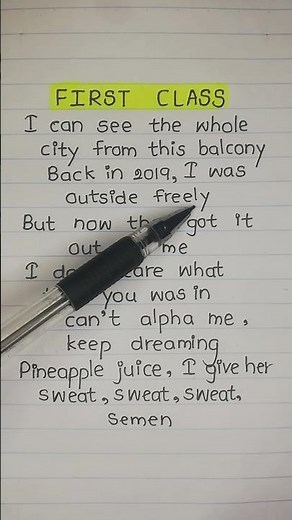 FIRST CLASS
I can see the whole
city from this balcony
Back in 2019, I was
outside freely
But now got it
out me
I what
you was in
can't alpha me,
keep dreaming
Pineapple juice, I give her
sweat, sweat, sweat,
Semen